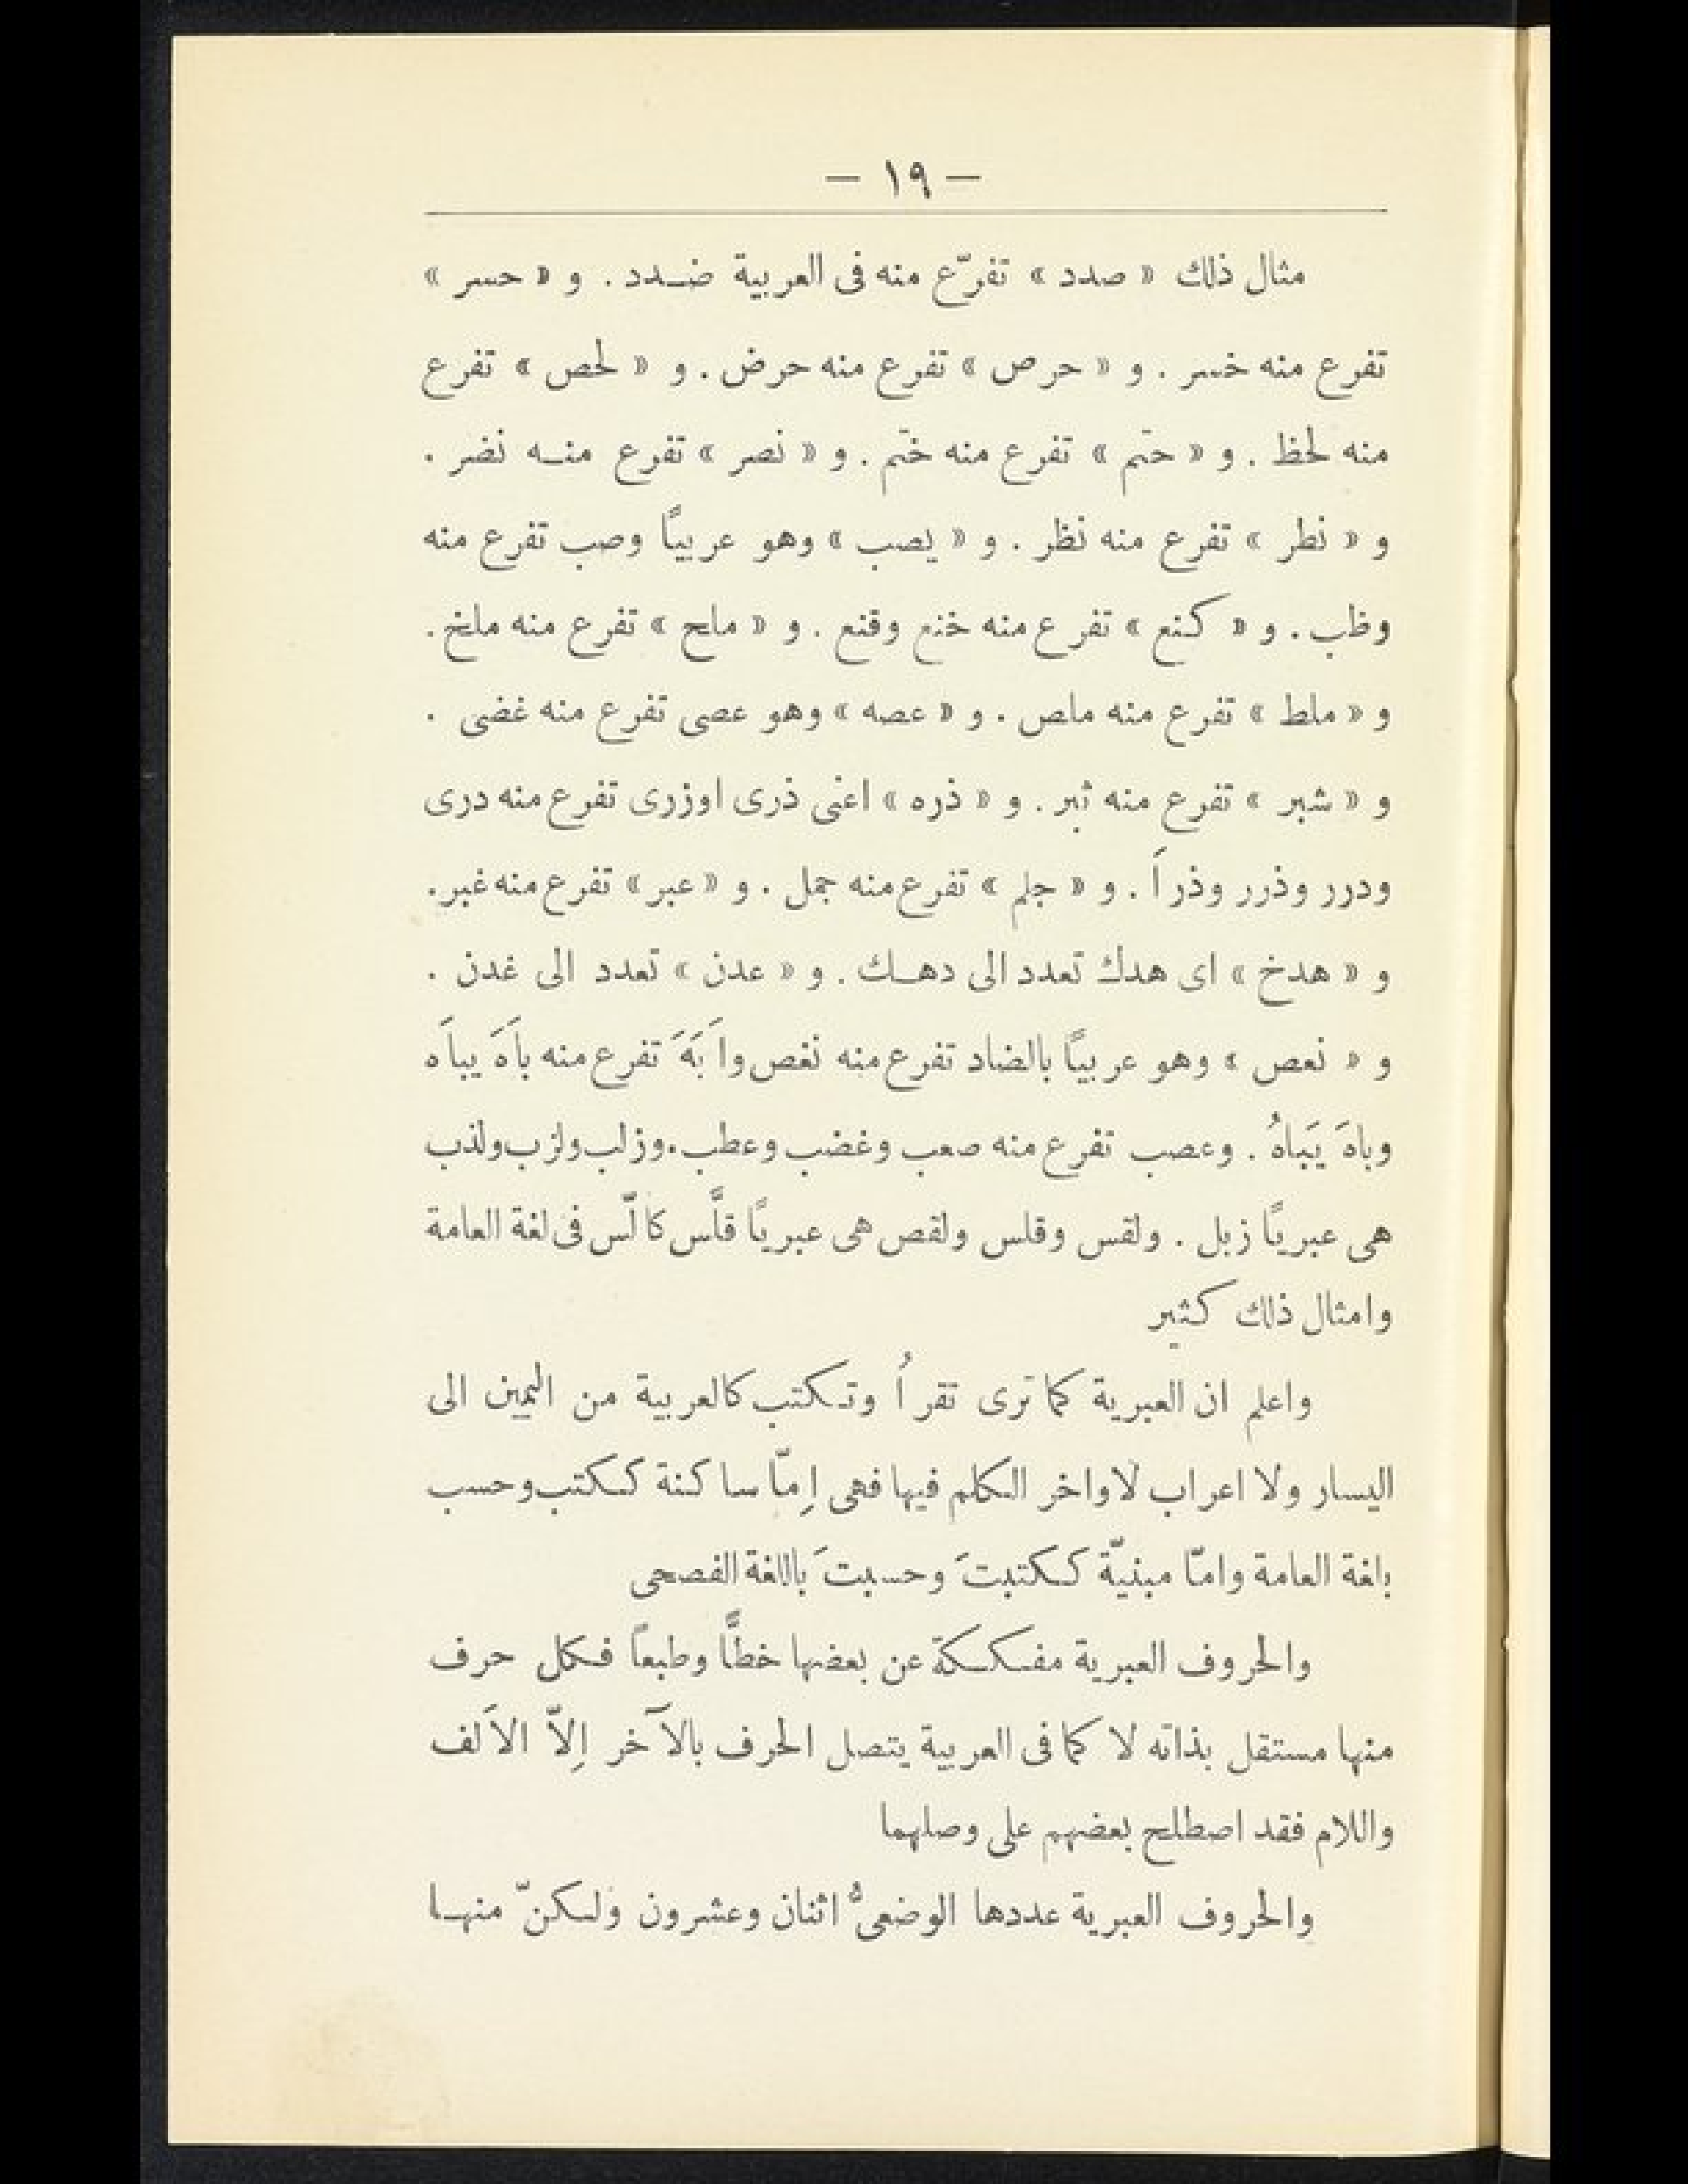 — ١٩ —
مثال ذلك « صدد » تفرّع منه فى العربية ضدد . و « حسر »
تفرع منه خسر . و « حرص » تفرع منه حرض . و « لحص » تفرع
منه لحظ . و « حتم » تفرع منه ختم . و « نصر » تفرع منه نضر .
و « نطر » تفرع منه نظر . و « يصب » وهو عربيًا وصب تفرع منه
وظب . و « كنع » تفرع منه خنع وقنع . و « ملح » تفرع منه ملخ .
و « ملط » تفرع منه ملص . و « عصه » وهو عصى تفرع منه غضى .
و « شبر » تفرع منه ثبر . و « ذره » اعنى ذرى اوزرى تفرع منه درى
ودرر وذرر وذرأَ . و « جلم » تفرع منه جمل . و « عبر » تفرع منه غبر .
و « هدخ » اى هدك تعدد الى دهك . و « عدن » تعدد الى غدن .
و « نعص » وهو عربيًا بالضاد تفرع منه نغص وأَبَهَ تفرع منه بأَهَ يبأَه
وباهَ يَباهُ . وعصب تفرع منه صعب وغضب وعطب . وزلب ولزب ولذب
هى عبريًا زبل . ولقس وقلس ولقص هى عبريًا قلَّس كالّس فى لغة العامة
وامثال ذلك كثير
واعلم ان العبرية كما ترى تقرأُ وتكتب كالعربية من اليمين الى
اليسار ولا اعراب لاواخر الكلم فيها فهى إِمّا ساكنة ككتب وحسب
بلغة العامة وامّا مبنيّة ككتبتَ وحسبتَ باللغة الفصحى
والحروف العبرية مفككة عن بعضها خطًّا وطبعاً فكل حرف
منها مستقل بذاته لا كما فى العربية يتصل الحرف بالآخر إِلاّ الالف
واللام فقد اصطلح بعضهم على وصلهما
والحروف العبرية عددها الوضعىُّ اثنان وعشرون ولكنّ منها